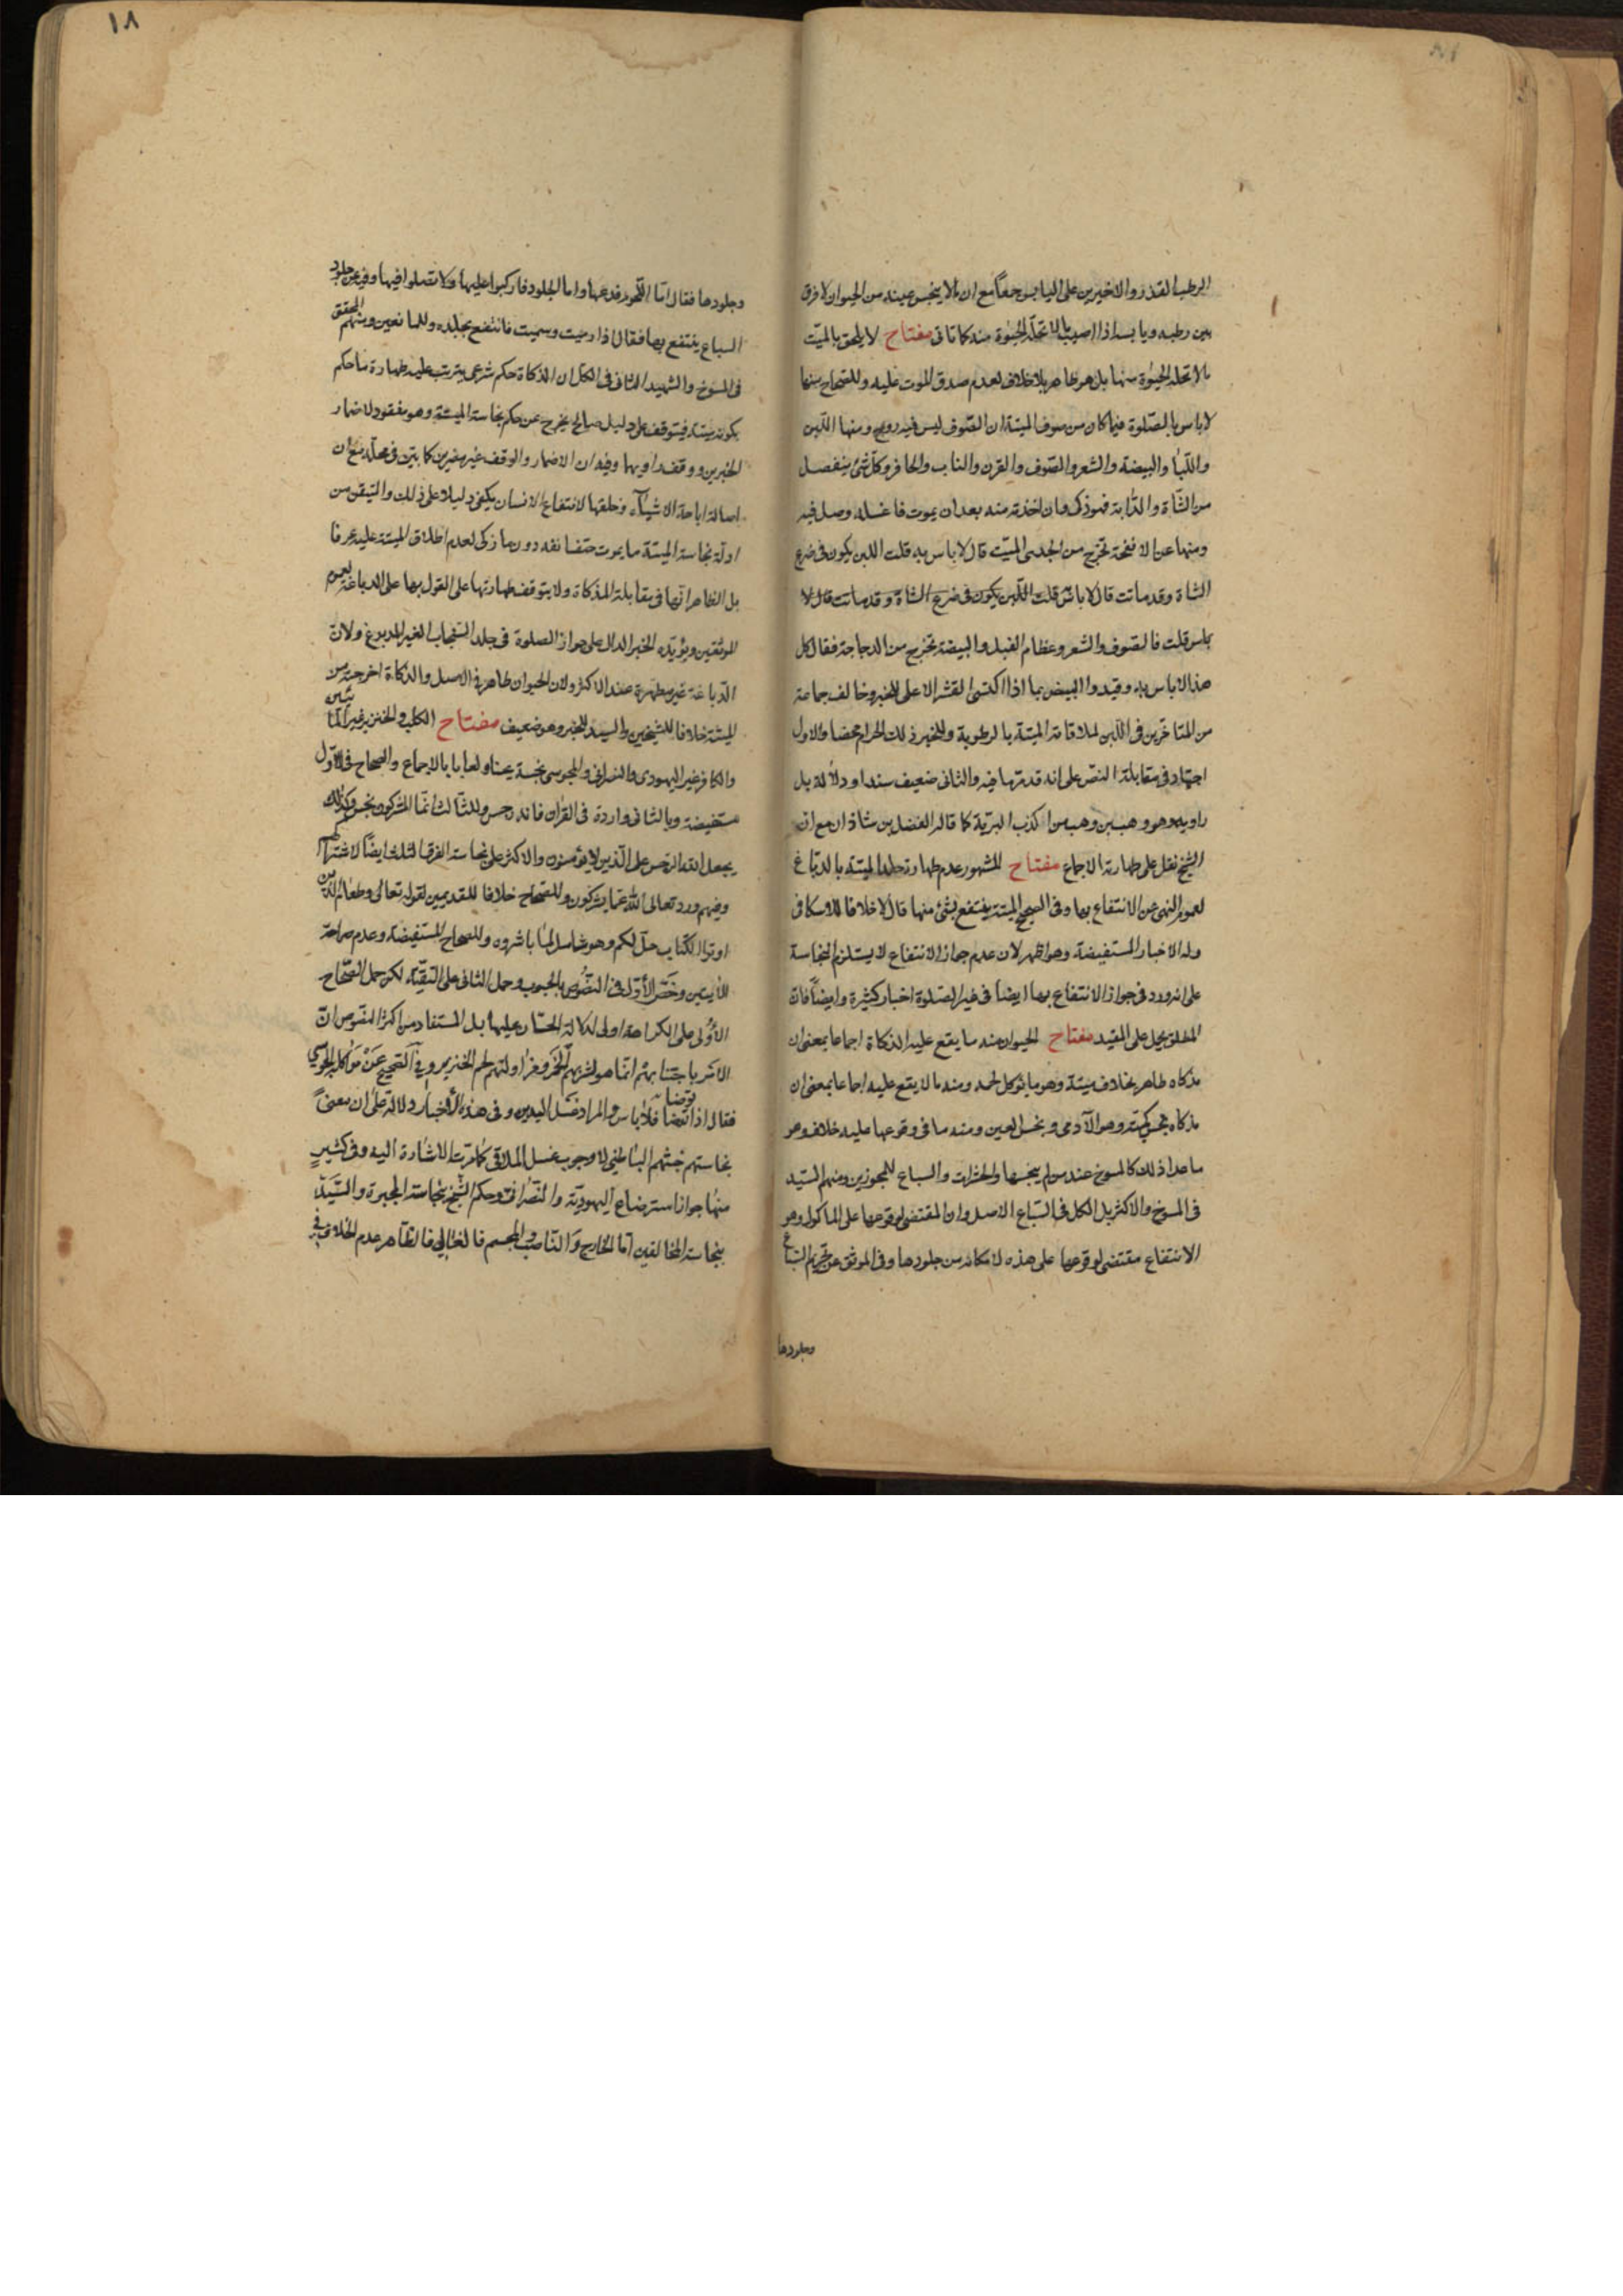 الرطب القذر والاخيرين على اليابس جمعاً مع ان ما لا ينجس عينه من الحيوان لا فرق
بين رطبه ويابسه اذا اصيب بما لا تحله الحيوة منه كما تاتى مفتاح لا يلحق بالميت
ما لا تحله الحيوة منها بل هو طاهر بلا خلاف لعدم صدق الموت عليه وللصحاح منها
لا باس بالصلوة فيما كان من صوف الميتة ان الصوف ليس فيه روح ومنها اللبن
واللبا والبيضة والشعر والصوف والقرن والناب والحافر وكل شئ ينفصل
من الشاة والدابة فهو ذكى وان اخذته منه بعد ان يموت فاغسله وصل فيه
ومنها عن الانفحة تخرج من الجدى الميت قال لا باس به قلت اللبن يكون فى ضرع
الشاة وقد ماتت قال لا باس قلت اللبن يكون فى ضرع الشاة وقد ماتت قال لا
باس قلت فالصوف والشعر وعظام الفيل والبيضة تخرج من الدجاجة فقال كل
هذا لا باس به وقيدوا البيض بما اذا اكتسى القشر الاعلى للخبر وخالف جماعة
من المتاخرين فى اللبن لملاقاته الميتة بالرطوبة وللخبر ذلك الحرام محضا والاول
اجتهاد فى مقابلة النص على انه قد مر ما فيه والثانى ضعيف سندا ودلالة بل
راويه هو وهب بن وهب من اكذب البرية كما قاله الفضل بن شاذان مع ان
الشيخ نقل على طهارته الاجماع مفتاح المشهور عدم طهارة جلد الميتة بالدباغ
لعموم النهى عن الانتفاع بها وفى الصحيح الميتة ينتفع بشئ منها قال لا خلافا للاسكافى
وله الاخبار المستفيضة وهو اظهر لان عدم جواز الانتفاع لا يستلزم النجاسة
على انه ورد فى جواز الانتفاع بها ايضا فى غير الصلوة اخبار كثيرة وايضاً فان
المطلق يحمل على المقيد مفتاح الحيوان منه ما يقع عليه الذكاة اجماعا بمعنى ان
مذكاه طاهر بخلاف ميتة وهو ما يؤكل لحمه ومنه ما لا يقع عليه اجماعا بمعنى ان
مذكاه نجس كميته وهو الآدمى ونجس العين ومنه ما فى وقوعها عليه خلاف وهو
ما عدا ذلك كالمسوخ عند من لم ينجسها والحشرات والسباع للمجوزين ومنهم السيد
فى المسوخ والاكثر بل الكل فى السباع الاصل وان المقتضى لوقوعها على الماكول وهو
الانتفاع مقتضى لوقوعها على هذه لامكانه من جلودها وفى الموثق عن تحريم السباع
وجلودها
١٨
وجلودها فقال اما اللحوم فدعها واما الجلود فاركبوا عليها ولا تصلوا فيها وفيه عن جلود
السباع ينتفع بها فقال اذا رميت وسميت فانتفع بجلده وللمانعين ومنهم المحقق
فى المسوخ والشهيد الثانى فى الكل ان الذكاة حكم شرعى يترتب عليه طهارة ما حكم
بكونه ميتة فيتوقف على دليل صالح يخرج عن حكم نجاسة الميتة وهو مفقود لاضمار
الخبرين ووقف راويهما وفيه ان الاضمار والوقف غير مضرين كما بين فى محله مع ان
اصالة اباحة الاشياء وخلقها لانتفاع الانسان يكفى دليلا على ذلك والتيقن من
ادلة نجاسة الميتة ما يموت حتف انفه دون ما زكى لعدم اطلاق الميتة عليه عرفا
بل الظاهر انها فى مقابلة المذكاة ولا يتوقف طهارتها على القول بها على الدباغة لعموم
الموثقين ويؤيده الخبر الدال على جواز الصلوة فى جلد السنجاب الغير المدبوغ ولان
الدباغة غير مطهرة عند الاكثر ولان الحيوان طاهر فى الاصل والذكاة اخرجته من
الميتة خلافا للشيخين والسيد للخبر وهو ضعيف مفتاح الكلب والخنزير غير المائيين
والكافر غير اليهودى والنصرانى والمجوسى نجسة عينا ولعابا بالاجماع والصحاح فى الاول
مستفيضة وبالثانى واردة فى القران فانه رجس وللثالث انما المشركون نجس وكذلك
يجعل الله الرجس على الذين لا يؤمنون والاكثر على نجاسة الفرق الثلث ايضاً لاشتراكهم
وفيهم ورد تعالى الله عما يشركون وللصحاح خلافا للقديمين لقوله تعالى وطعام الذين
اوتوا الكتاب حل لكم وهو شامل لما باشروه وللصحاح المستفيضة وعدم صراحة
الآيتين وخص الأول فى النصوص بالحبوب وحمل الثانى على التقية لكن حمل الصحاح
الأولى على الكراهة اولى لدلالة الحسان عليها بل المستفاد من اكثر النصوص ان
الامر باجتنابهم انما هو لشربهم الخمر ومزاولتهم لحم الخنزير وفى الصحيح عن مواكلة المجوسي
فقال اذا توضا فلا باس والمراد غسل اليدين وفى هذه الأخبار دلالة على ان معنى
نجاستهم خبثهم الباطنى لا وجوب غسل الملاقى كما مرت الاشارة اليه وفى كثير
منها جواز استرضاع اليهودية والنصرانى وحكم الشيخ بنجاسة المجبرة والسيد
بنجاسة المخالفين اما الخارج والناصب والمجسم فالغالى فالظاهر عدم الخلاف فى